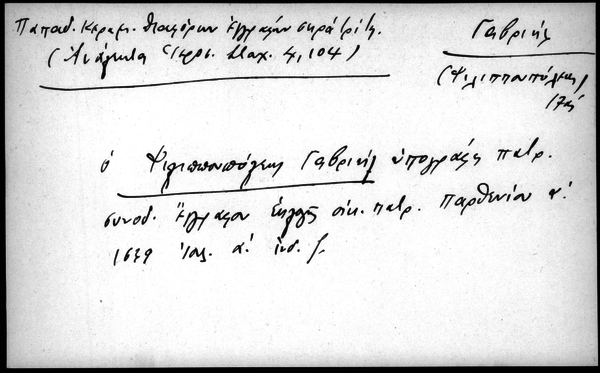 Παπαδ. Κεραμ. Διαφόρων ἐγγράφων σειρὰ τρίτ.
(Ἀνάλεκτα Ἱεροσ. Σταχ. 4, 104)
Γαβριήλ
(Φιλιππουπόλεως)
17ος
ὁ Φιλιππουπόλεως Γαβριὴλ ὑπογράφει πατρ.
συνοδ. ἔγγραφον ἐκλογῆς οἰκ. πατρ. Παρθενίου α΄.
1639 Ἰουλ. α΄. ἰνδ. ζ.